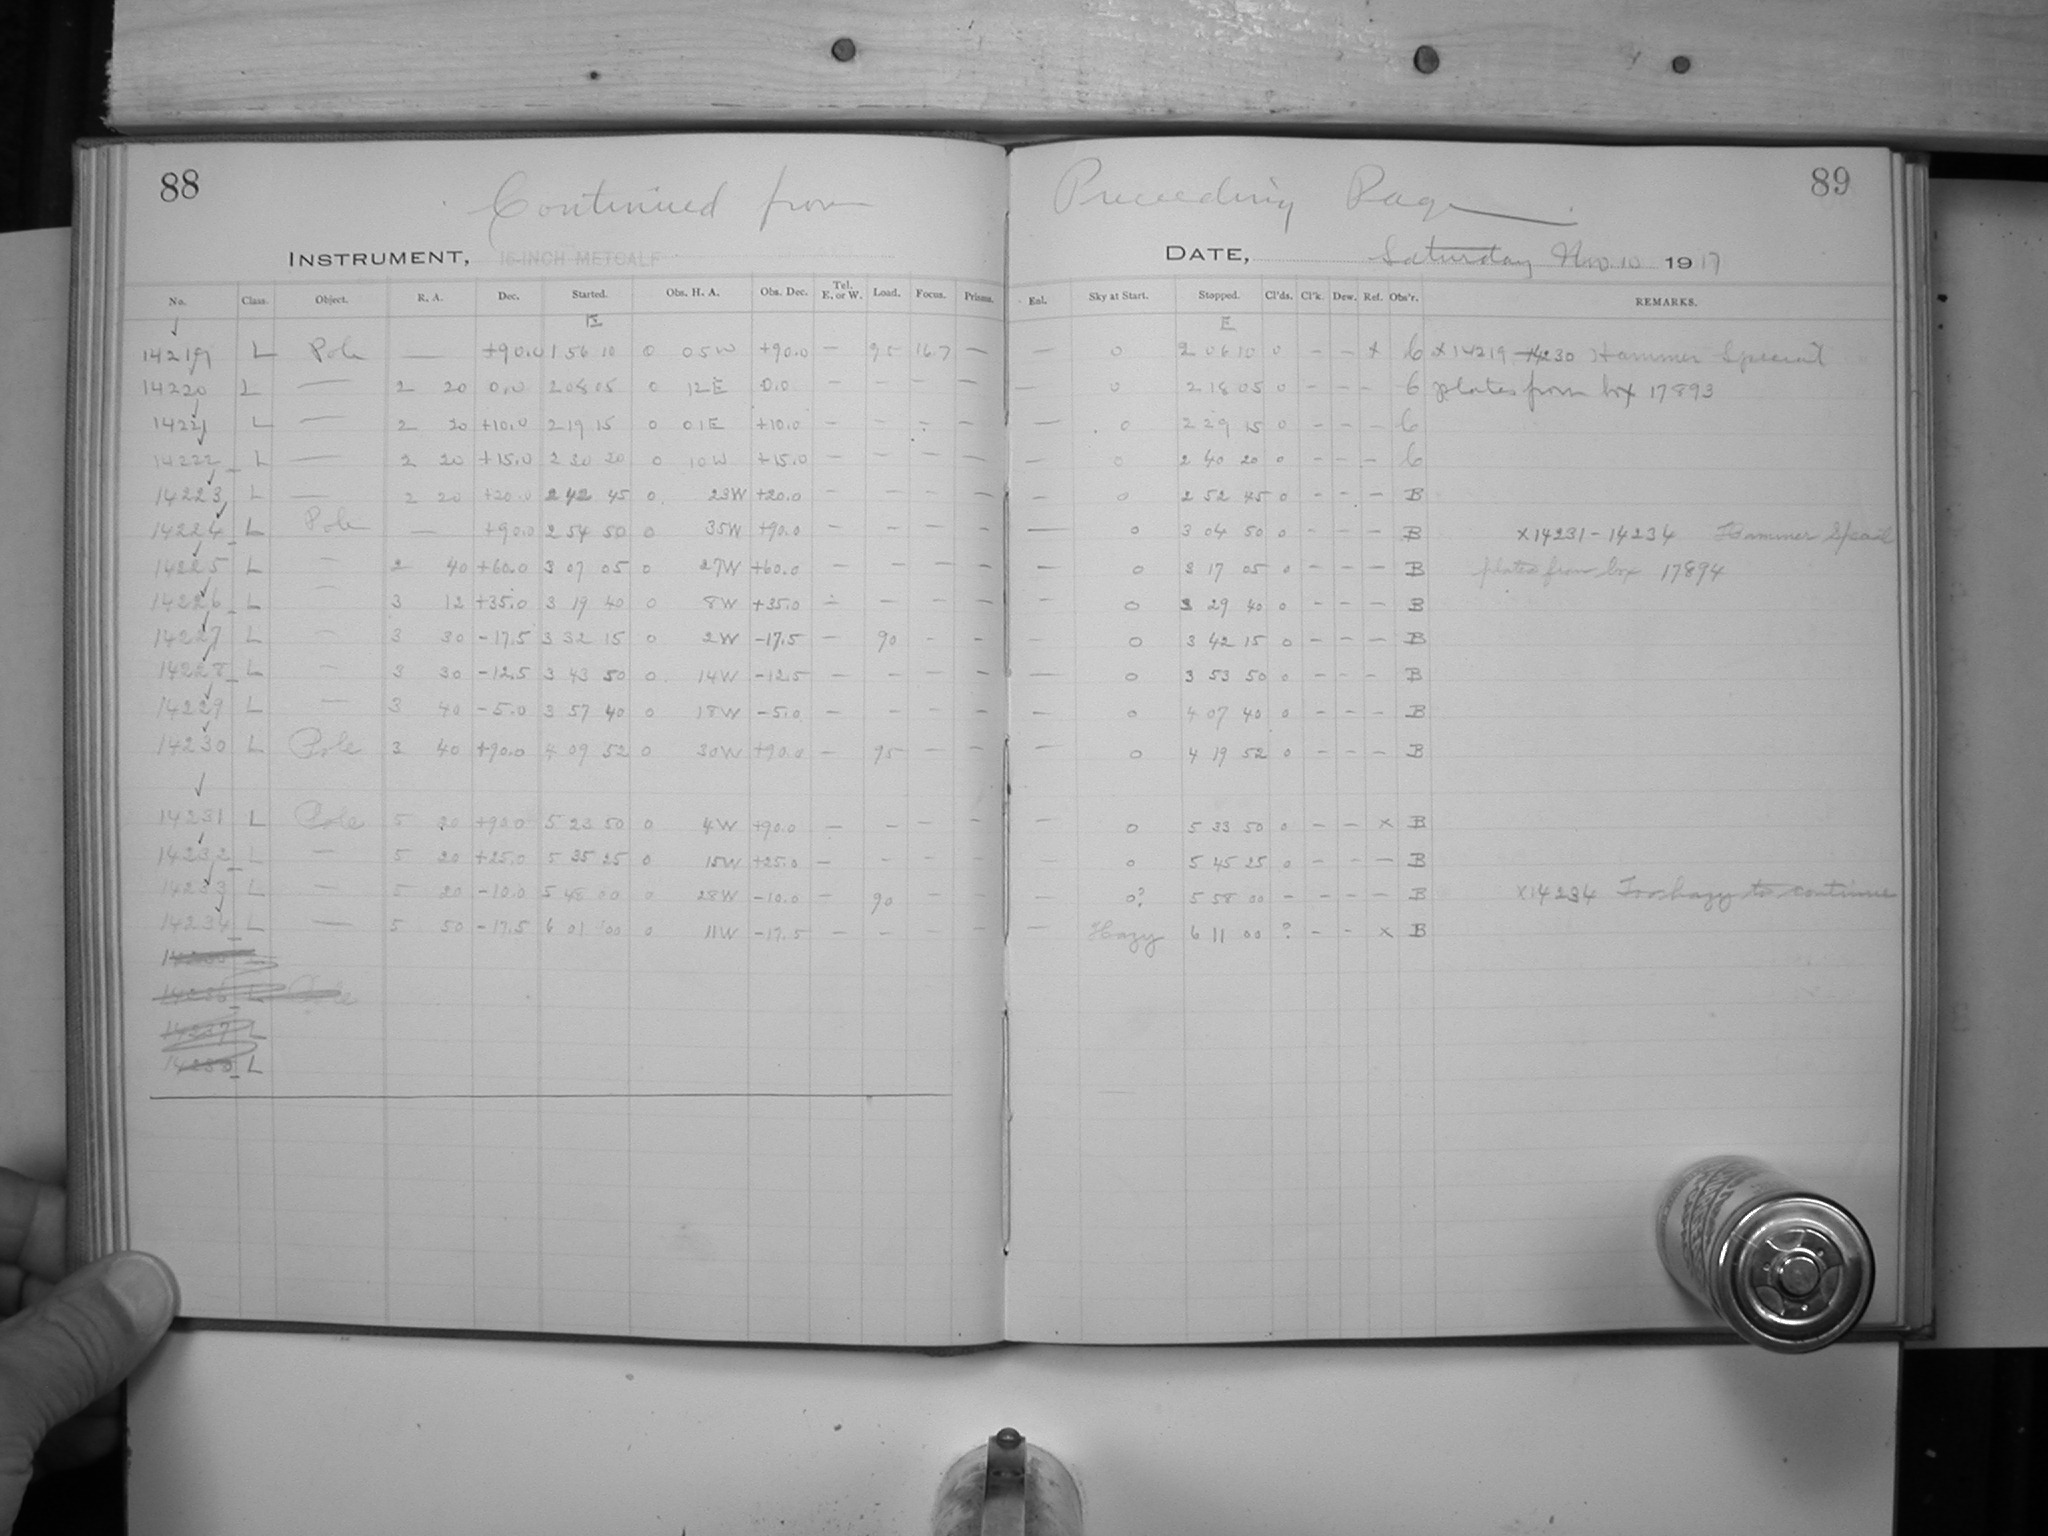 88
Continued from Preceeding Page
89
INSTRUMENT, 16-INCH METCALF
DATE, Saturday Nov. 10 1917
No. Class. Object. R. A. Dec. Started. Obs. H. A. Obs. Dec. Tel. E. or W. Load. Focus. Prisms. Enl. Sky at Start. Stopped. Cl'ds. Cl'k. Dew. Ref. Obs'r. REMARKS.
E E
14219 L Pole — +90.0 1 56 10 0 05W +90.0 — 95 16.7 — — 0 2 06 10 0 - - x 6 x14219-14230 Hammer Special
14220 L — 2 20 0.0 2 08 05 0 12E 0.0 — — — — — 0 2 18 05 0 - - - 6 plates from box 17893
14221 L — 2 20 +10.0 2 19 15 0 01E +10.0 — — — — — 0 2 29 15 0 - - - 6
14222 L — 2 20 +15.0 2 30 20 0 10W +15.0 — — — — — 0 2 40 20 0 - - - 6
14223 L — 2 20 +20.0 2 42 45 0 23W +20.0 — — — — — 0 2 52 45 0 - - - B
14224 L Pole — +90.0 2 54 50 0 35W +90.0 — — — — — 0 3 04 50 0 - - - B x14231-14234 Hammer Special
14225 L — 2 40 +60.0 3 07 05 0 27W +60.0 — — — — — 0 3 17 05 0 - - - B plates from box 17894
14226 L — 3 12 +35.0 3 19 40 0 8W +35.0 — — — — — 0 3 29 40 0 - - - B
14227 L — 3 30 -17.5 3 32 15 0 2W -17.5 — 90 - — — 0 3 42 15 0 - - - B
14228 L — 3 30 -12.5 3 43 50 0 14W -12.5 — — — — — 0 3 53 50 0 - - - B
14229 L — 3 40 -5.0 3 57 40 0 18W -5.0 — — — — — 0 4 07 40 0 - - - B
14230 L Pole 3 40 +90.0 4 09 52 0 30W +90.0 — 95 — — — 0 4 19 52 0 - - - B
14231 L Pole 5 20 +90.0 5 23 50 0 4W +90.0 — — — — — 0 5 33 50 0 - - x B
14232 L — 5 20 +25.0 5 35 25 0 15W +25.0 — — — — — 0 5 45 25 0 - - - B
14233 L — 5 20 -10.0 5 48 00 0 28W -10.0 — 90 — — — 0? 5 58 00 - - - - B x14234 Too hazy to continue
14234 L — 5 50 -17.5 6 01 00 0 11W -17.5 — — — — — Hazy 6 11 00 ? - - x B
14235 L
14236 L Pole
14237 L
14238 L